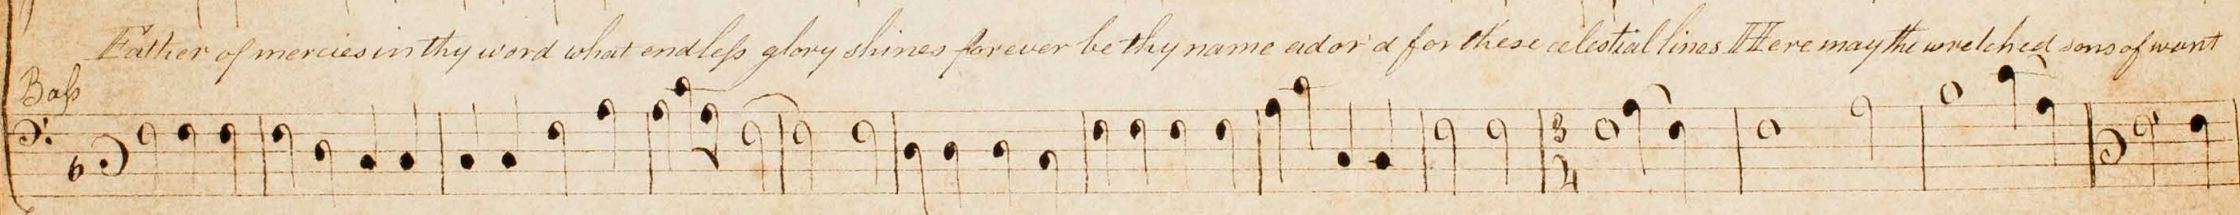 Father of mercies in thy word what endleſs glory shines forever be thy name ador'd for these celestial lines Here may the wretched sons of want
Baſs
6
3
4